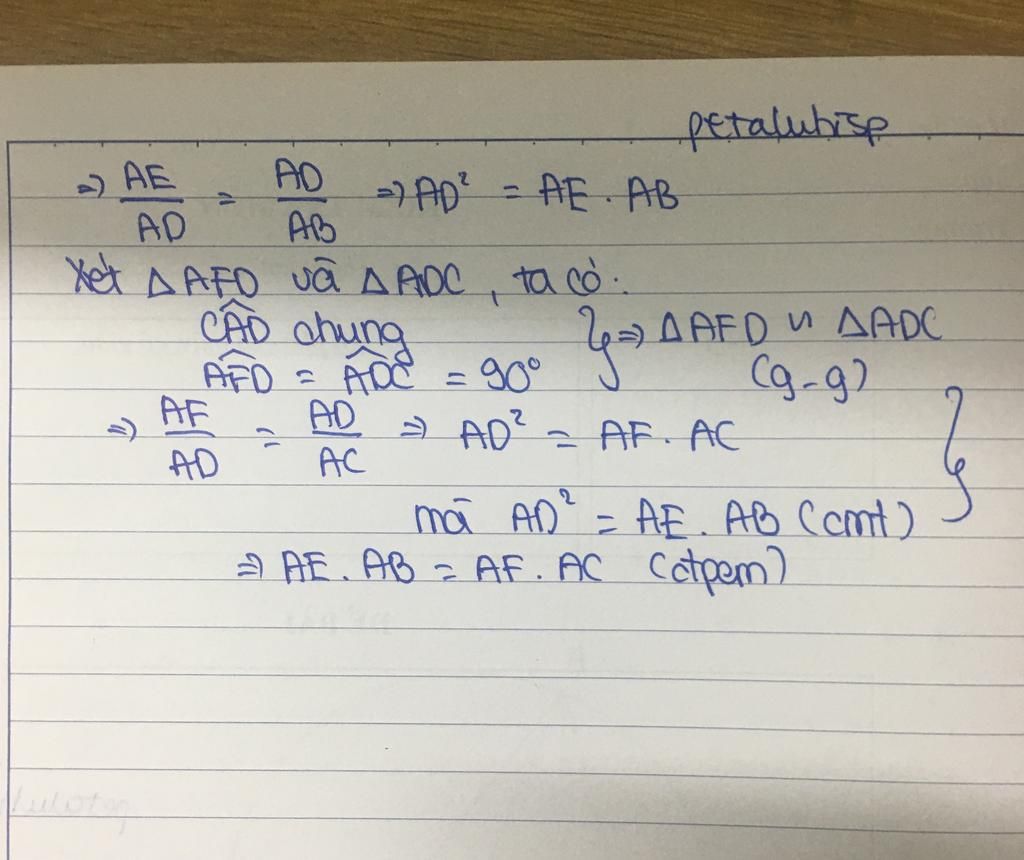 petaluhisp
⇒ AE/AD = AD/AB ⇒ AD² = AE . AB
Xét ΔAFD và ΔADC, ta có:
CÂD chung
AF̂D = AD̂C = 90° } ⇒ ΔAFD ∽ ΔADC (g-g)
⇒ AF/AD = AD/AC ⇒ AD² = AF . AC
mà AD² = AE . AB (cmt) }
⇒ AE . AB = AF . AC (đtpcm)